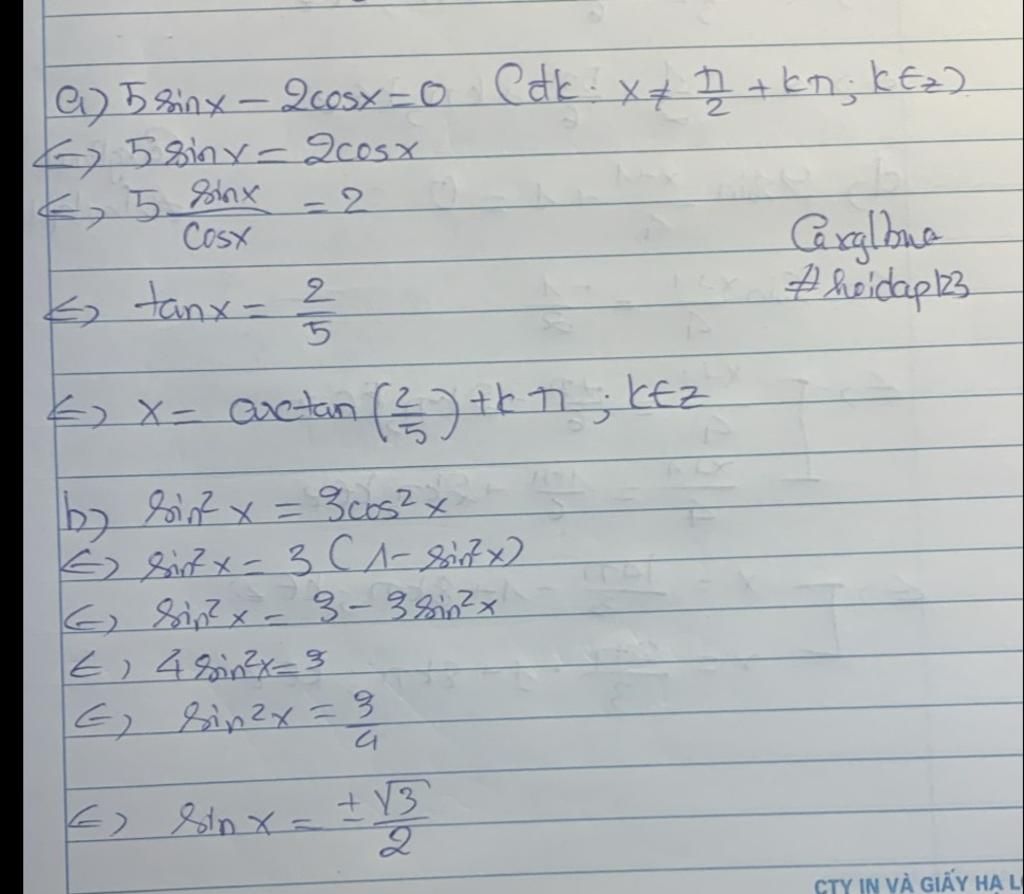 a) 5sinx - 2cosx = 0 (đk: x ≠ π/2 + kπ; k∈z)
<=> 5sinx = 2cosx
<=> 5 sinx/cosx = 2
Carglbua
#hoidap123
<=> tanx = 2/5
<=> x = arctan(2/5) + kπ; k∈z
b) sin²x = 3cos²x
<=> sin²x = 3(1 - sin²x)
<=> sin²x = 3 - 3sin²x
<=> 4sin²x = 3
<=> sin²x = 3/4
<=> sinx = ±√3/2
CTY IN VÀ GIẤY HẠ L